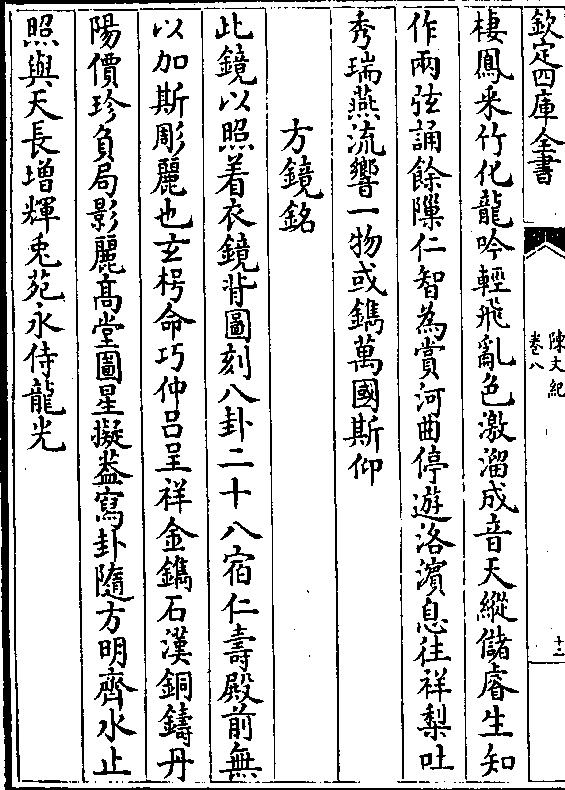 欽定四庫全書
陳文紀
卷八
十二
棲鳳采竹化龍吟輕飛亂色激溜成音天縱儲睿生知
作兩弦誦餘隟仁智為賞河曲停遊洛濵息往祥梨吐
秀瑞燕流響一物或鐫萬國斯仰
方鏡銘
此鏡以照着衣鏡背圖刻八卦二十八宿仁壽殿前無
以加斯彫麗也玄枵命巧仲呂呈祥金鐫石漢銅鑄丹
陽價珍負局影麗髙堂圖星擬葢寫卦隨方明齊水止
照與天長增輝兎苑永侍龍光